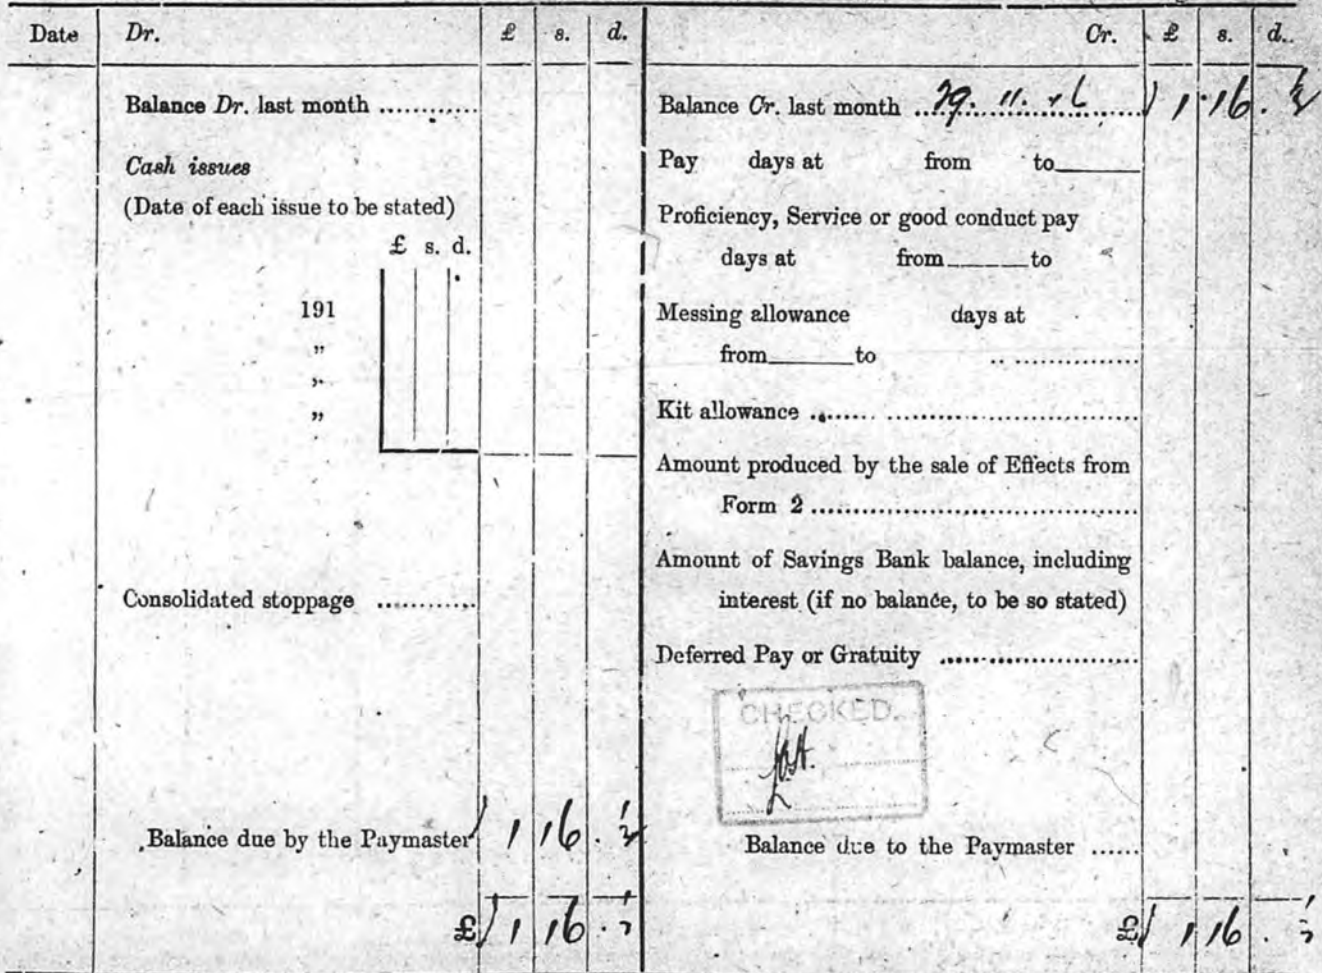 Date Dr. £ s. d.
Balance Dr. last month ............
Cash issues
(Date of each issue to be stated)
£ s. d.
191
"
"
"
Consolidated stoppage ............
Balance due by the Paymaster 1 16 . ½
£ 1 16 . ½
Cr. £ s. d.
Balance Cr. last month 11. 1 16 . ½
Pay days at from to
Proficiency, Service or good conduct pay
days at from to
Messing allowance days at
from to .. ...............
Kit allowance ........ ...........................
Amount produced by the sale of Effects from
Form 2 ....................................
Amount of Savings Bank balance, including
interest (if no balance, to be so stated)
Deferred Pay or Gratuity .....................
CHECKED.
Balance due to the Paymaster ......
£ 1 16 . ½